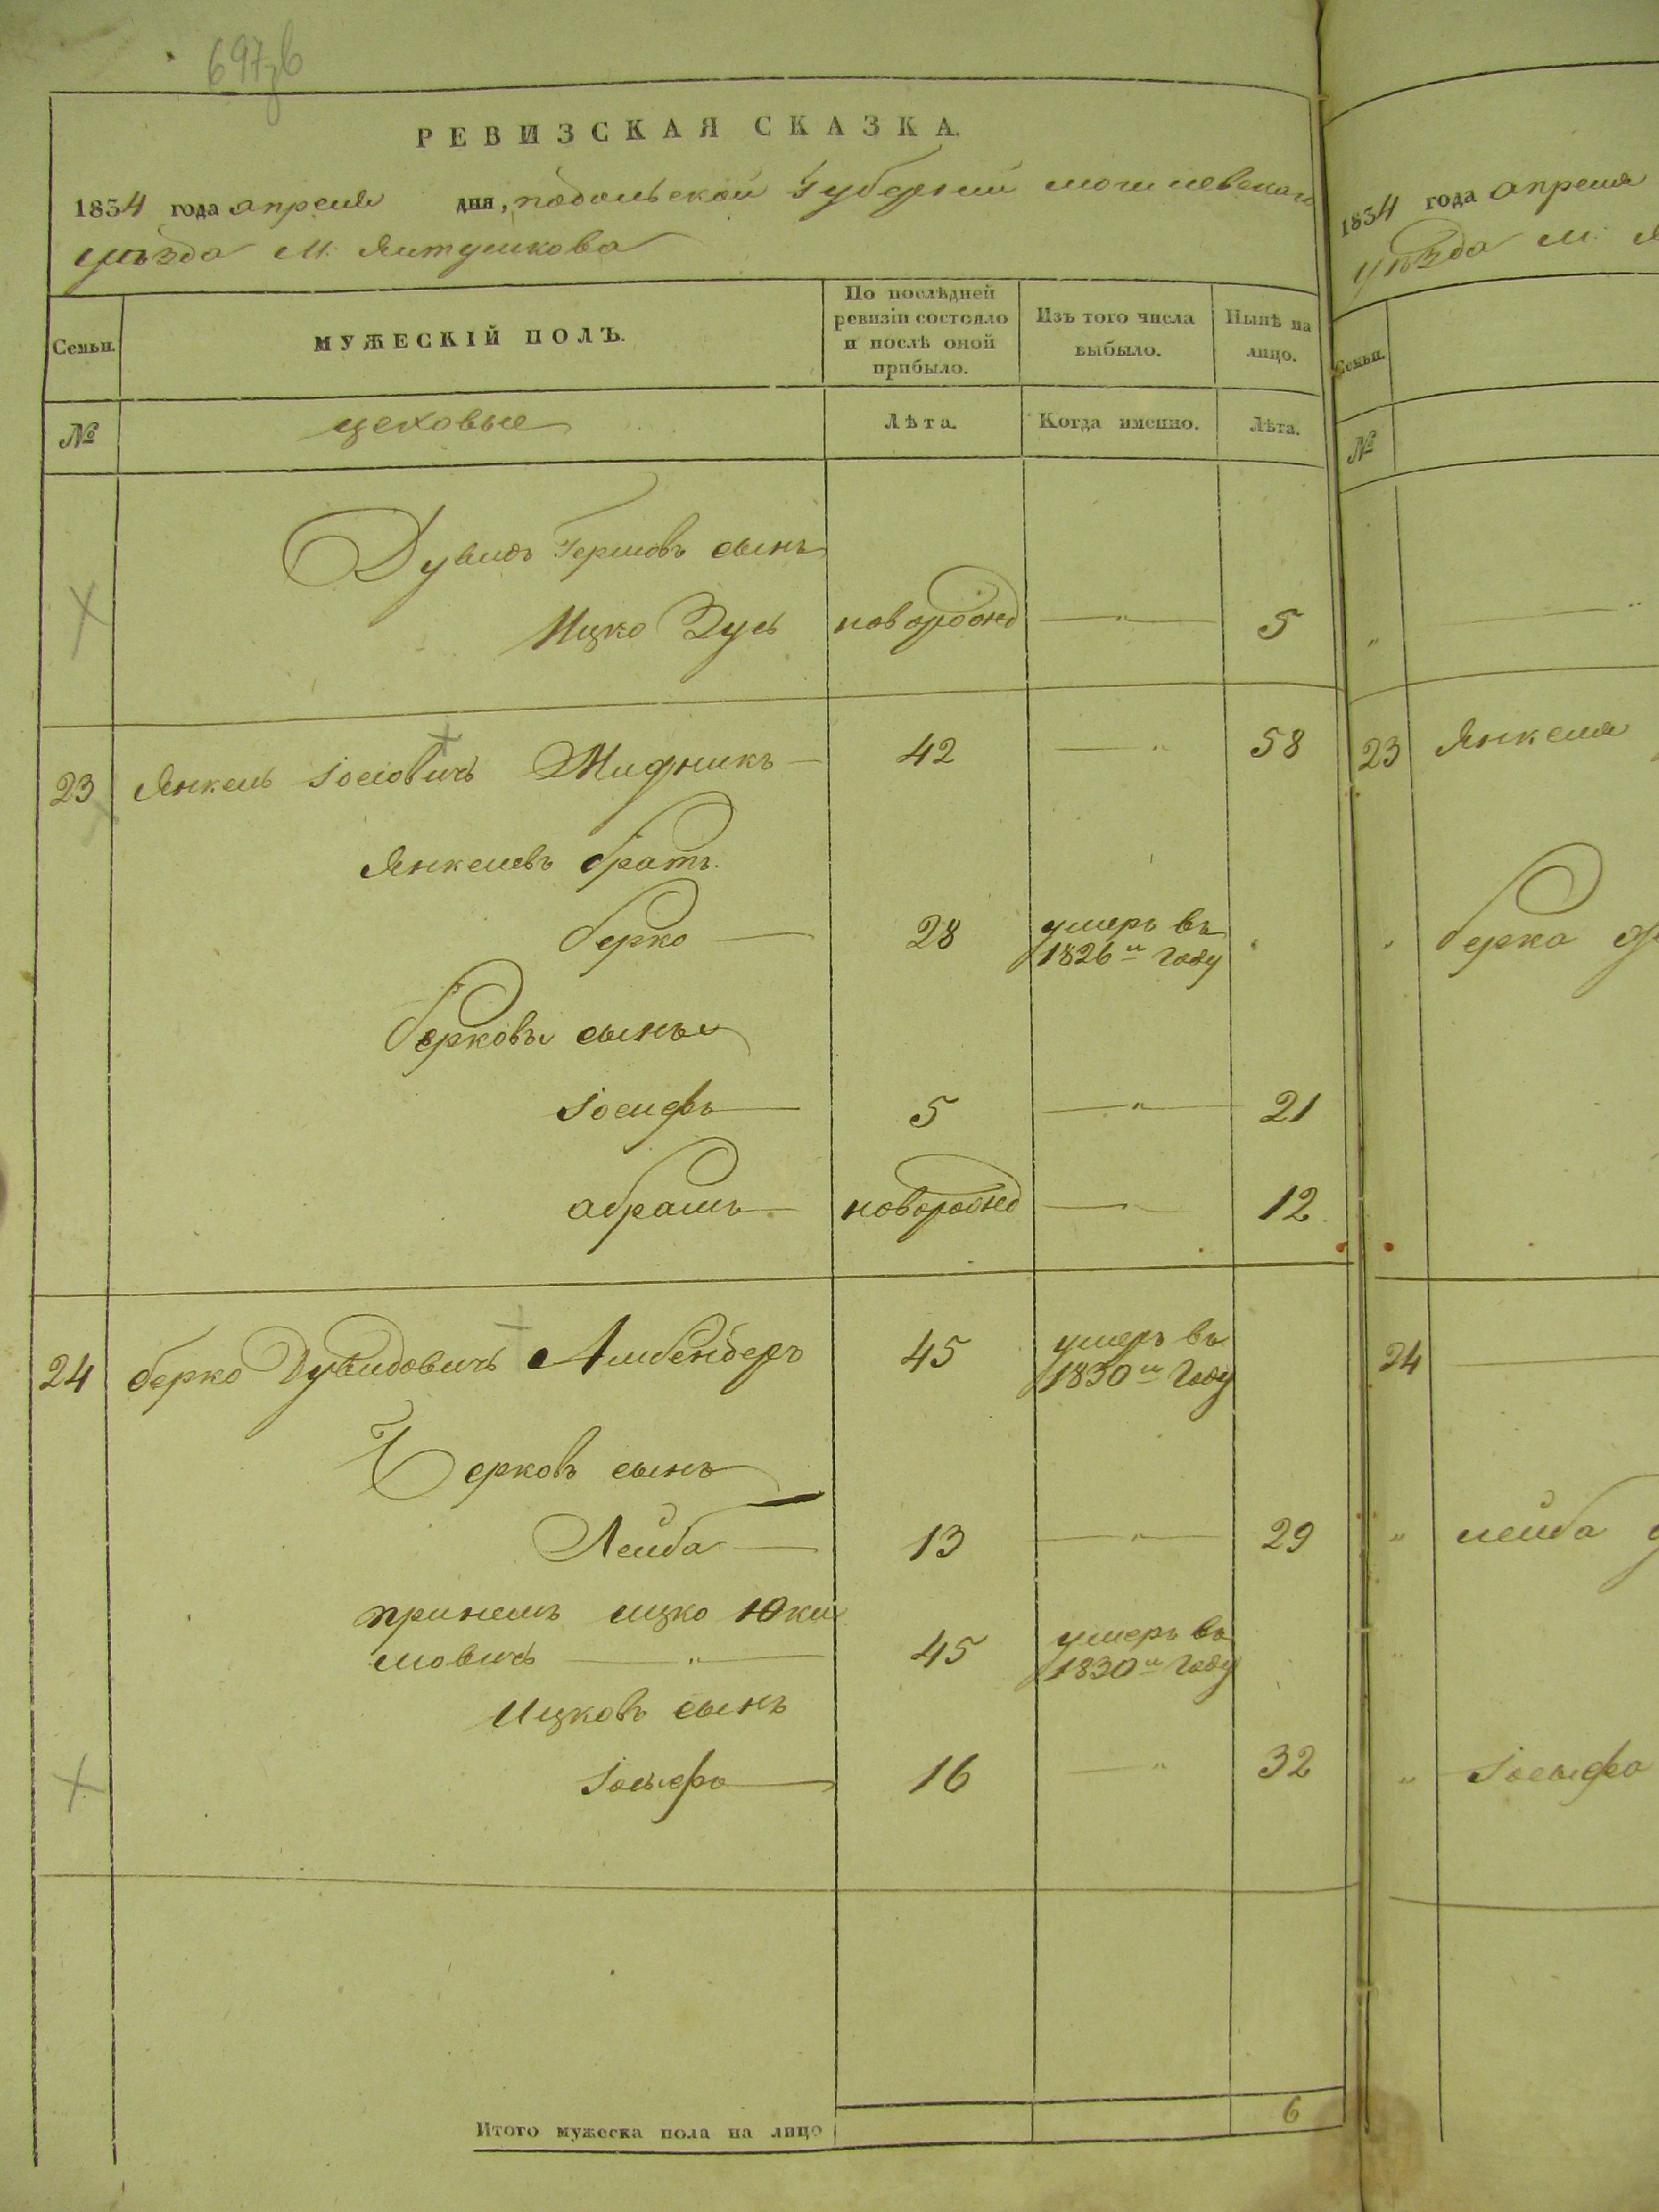 697зв
РЕВИЗСКАЯ СКАЗКА.
1834 года апреля дня, подольской Губернии могилевскаго
уѣзда М: Ялтушкова
Семьи.
МУЖЕСКІЙ ПОЛЪ.
По послѣдней
ревизіи состояло
и послѣ оной
прибыло.
Изъ того числа
выбыло.
Нынѣ на
лицо.
№
цеховые
Лѣта.
Когда именно.
Лѣта.
Дувидъ Гершовъ сынъ
Ицко Зусь новорожд — " — 5
23 Янкель Іосіовичъ Мидникъ — 42 — " 58
Янкелевъ братъ.
берко — 28 умеръ въ
1826м году
берковы сыны
Іосифъ — 5 — " — 21
абрамъ — новорожд — 12
24 берко Дувидовичъ 45 умеръ въ
1830м Году
Берковъ сынъ
Лейба — 13 — " — 29
принемъ ицко Юки
мовичъ — " — 45 умеръ въ
1830м Году
Ицковъ сынъ
Іосифъ — 16 — " 32
Итого мужеска пола на лицо 6
1834 года апреля
уѣзда М:
Семьи.
№
"
23 Янкеля
берка
24 —
" лейба
" Іосифа